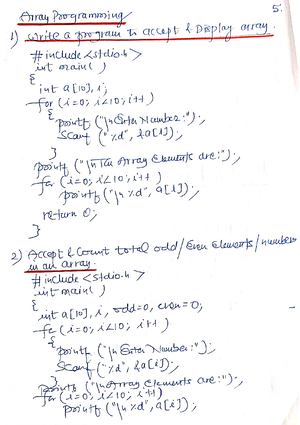 Array Programming
5.
1) Write a program to accept & Display array.
#include <stdio.h>
int main( )
{
int a[10], i;
for (i=0; i<10; i++)
{
printf ("\n Enter Number:");
scanf ("%d", &a[i]);
}
printf ("\n The Array Elements are:");
for (i=0; i<10; i++)
printf ("\n %d", a[i]);
return 0;
}
2) Accept & Count total odd/Even Elements/numbers
in an array.
#include <stdio.h>
int main( )
{
int a[10], i, odd=0, even=0;
for (i=0; i<10; i++)
{
printf ("\n Enter Number:");
scanf ("%d", &a[i]);
}
printf ("\n Array Elements are:");
for (i=0; i<10; i++)
printf ("\n %d", a[i]);